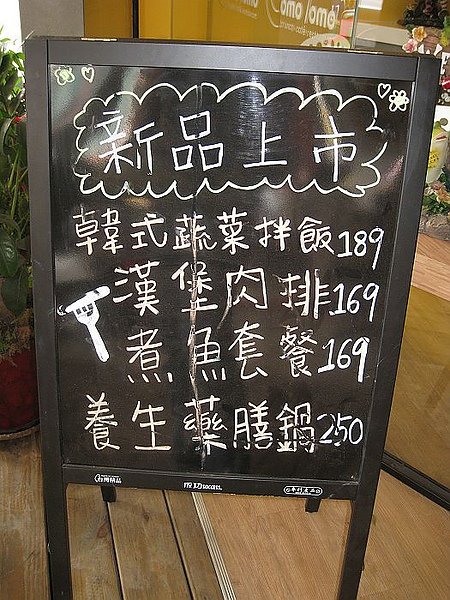 Tomo Tomo
新品上市
韓式蔬菜拌飯189
漢堡肉排169
煮魚套餐169
養生藥膳鍋250
台灣精品
成功success.